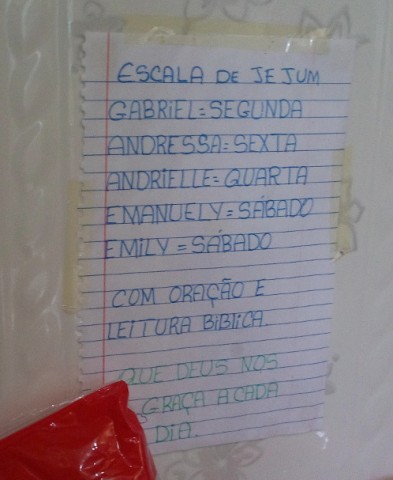 ESCALA DE JEJUM
GABRIEL=SEGUNDA
ANDRESSA=SEXTA
ANDRIELLE=QUARTA
EMANUELY=SÁBADO
EMILY=SÁBADO
COM ORAÇÃO E
LEITURA BIBLICA.
QUE DEUS NOS
GRAÇA A CADA
DIA.